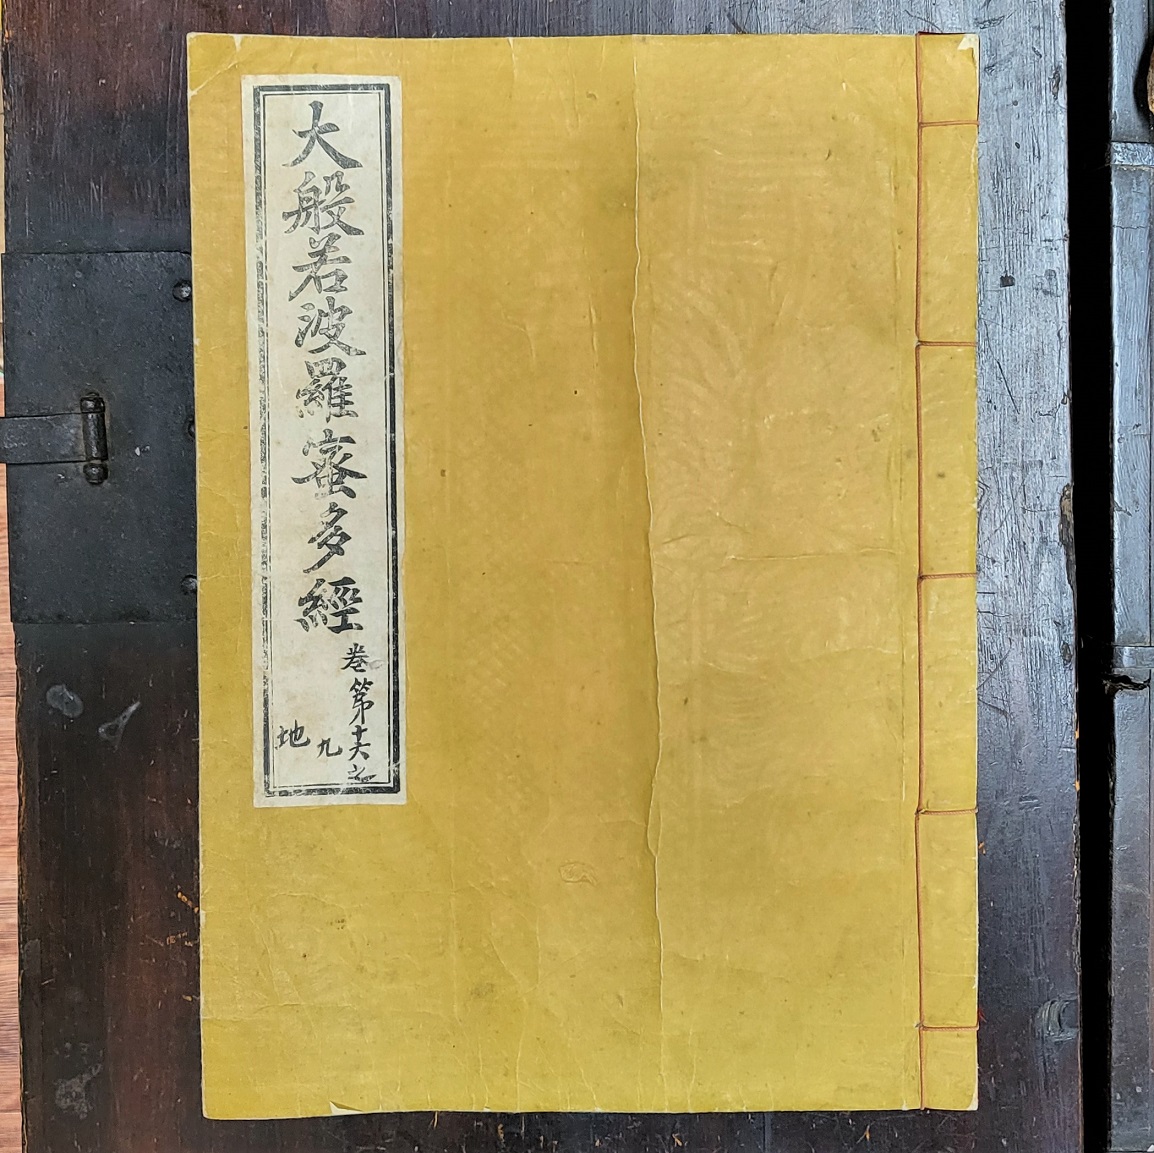 大般若波羅蜜多經
卷第十六之
九
地